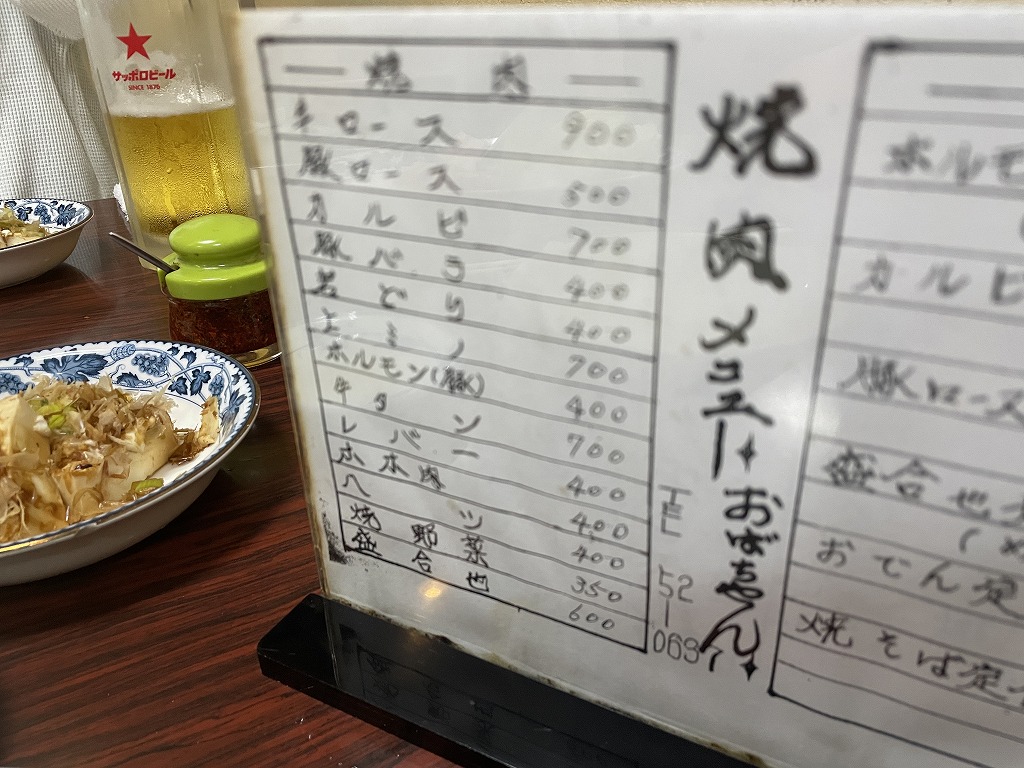 サッポロビール
SINCE 1876
焼肉
牛ロース 900
豚ロース 500
カルビ 700
豚バラ 400
若どり 400
上ミノ 700
ホルモン(豚) 400
牛タン 700
レバー 400
ホホ肉 400
ハツ 400
焼野菜 350
盛合せ 600
焼肉メニュー
おばちゃん
TEL 52-0697
ホルモ
カルビ
豚ロース
盛合せ
おでん定
焼そば定